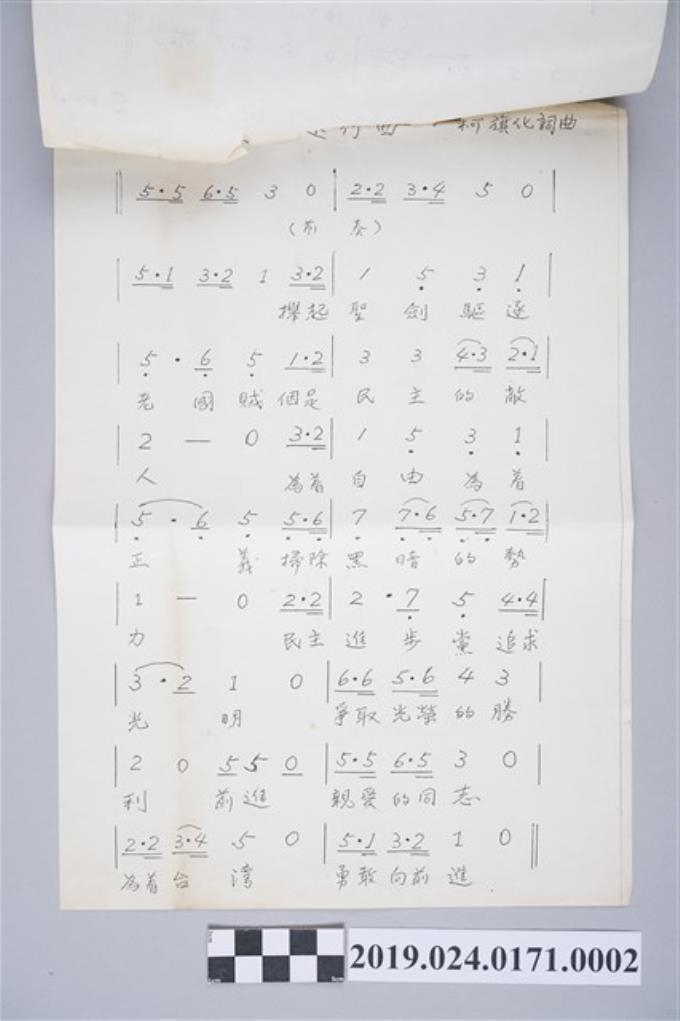 進行曲 — 柯旗化詞曲
‖ 5·5 6·5 3 0 | 2·2 3·4 5 0 |
(前 奏)
| 5·1 3·2 1 3·2 | 1 5 3 1 |
攑起 聖 劍 驅 逐
| 5 · 6 5 1·2 | 3 3 4·3 2·1 |
老 國 賊 個是 民 主 的 敵
| 2 — 0 3·2 | 1 5 3 1 |
人 為着 自 由 為 着
| 5 · 6 5 5·6 | 7 7·6 5·7 1·2 |
正 義 掃除 黑 暗 的 勢
| 1 — 0 2·2 | 2 · 7 5 4·4 |
力 民主 進 步 黨 追求
| 3 · 2 1 0 | 6·6 5·6 4 3 |
光 明 爭取 光榮 的 勝
| 2 0 5 5 0 | 5·5 6·5 3 0 |
利 前進 親愛 的同 志
| 2·2 3·4 5 0 | 5·1 3·2 1 0 ‖
為着 台 湾 勇敢 向前 進
2019.024.0171.0002